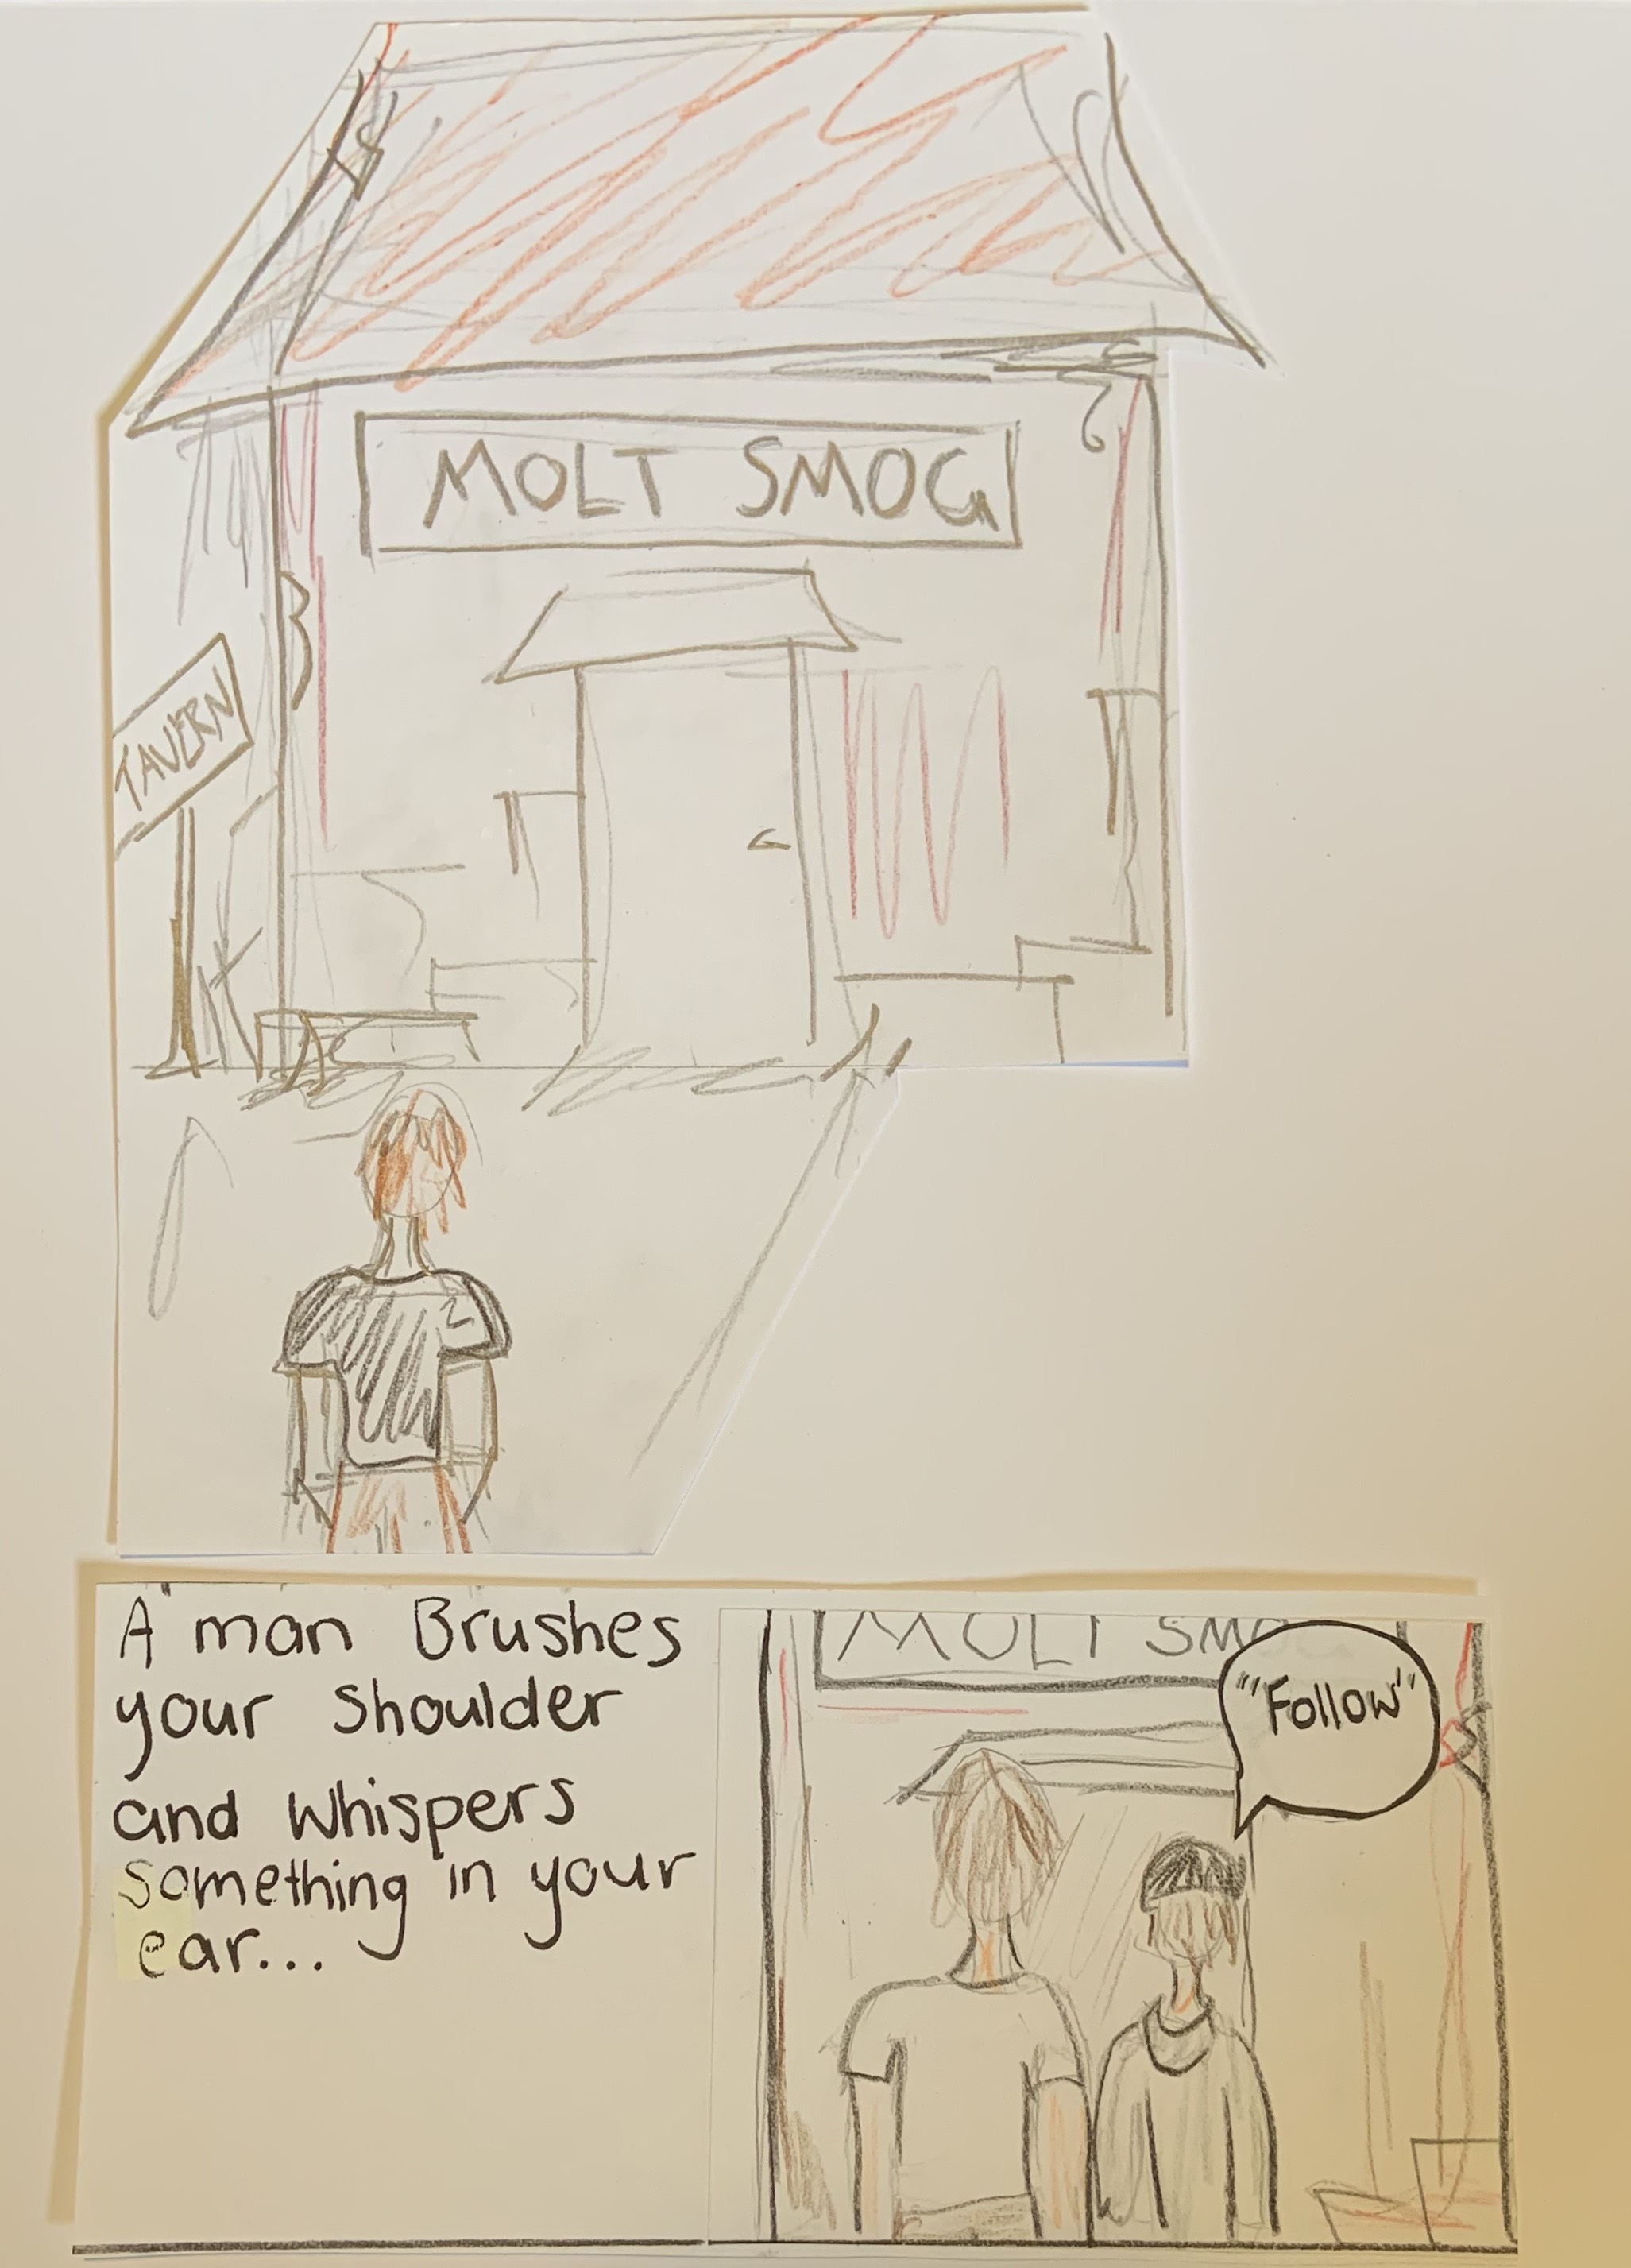 MOLT SMOG
TAVERN
A man Brushes
your shoulder
and whispers
something in your
ear...
MOLT SMOG
"Follow"